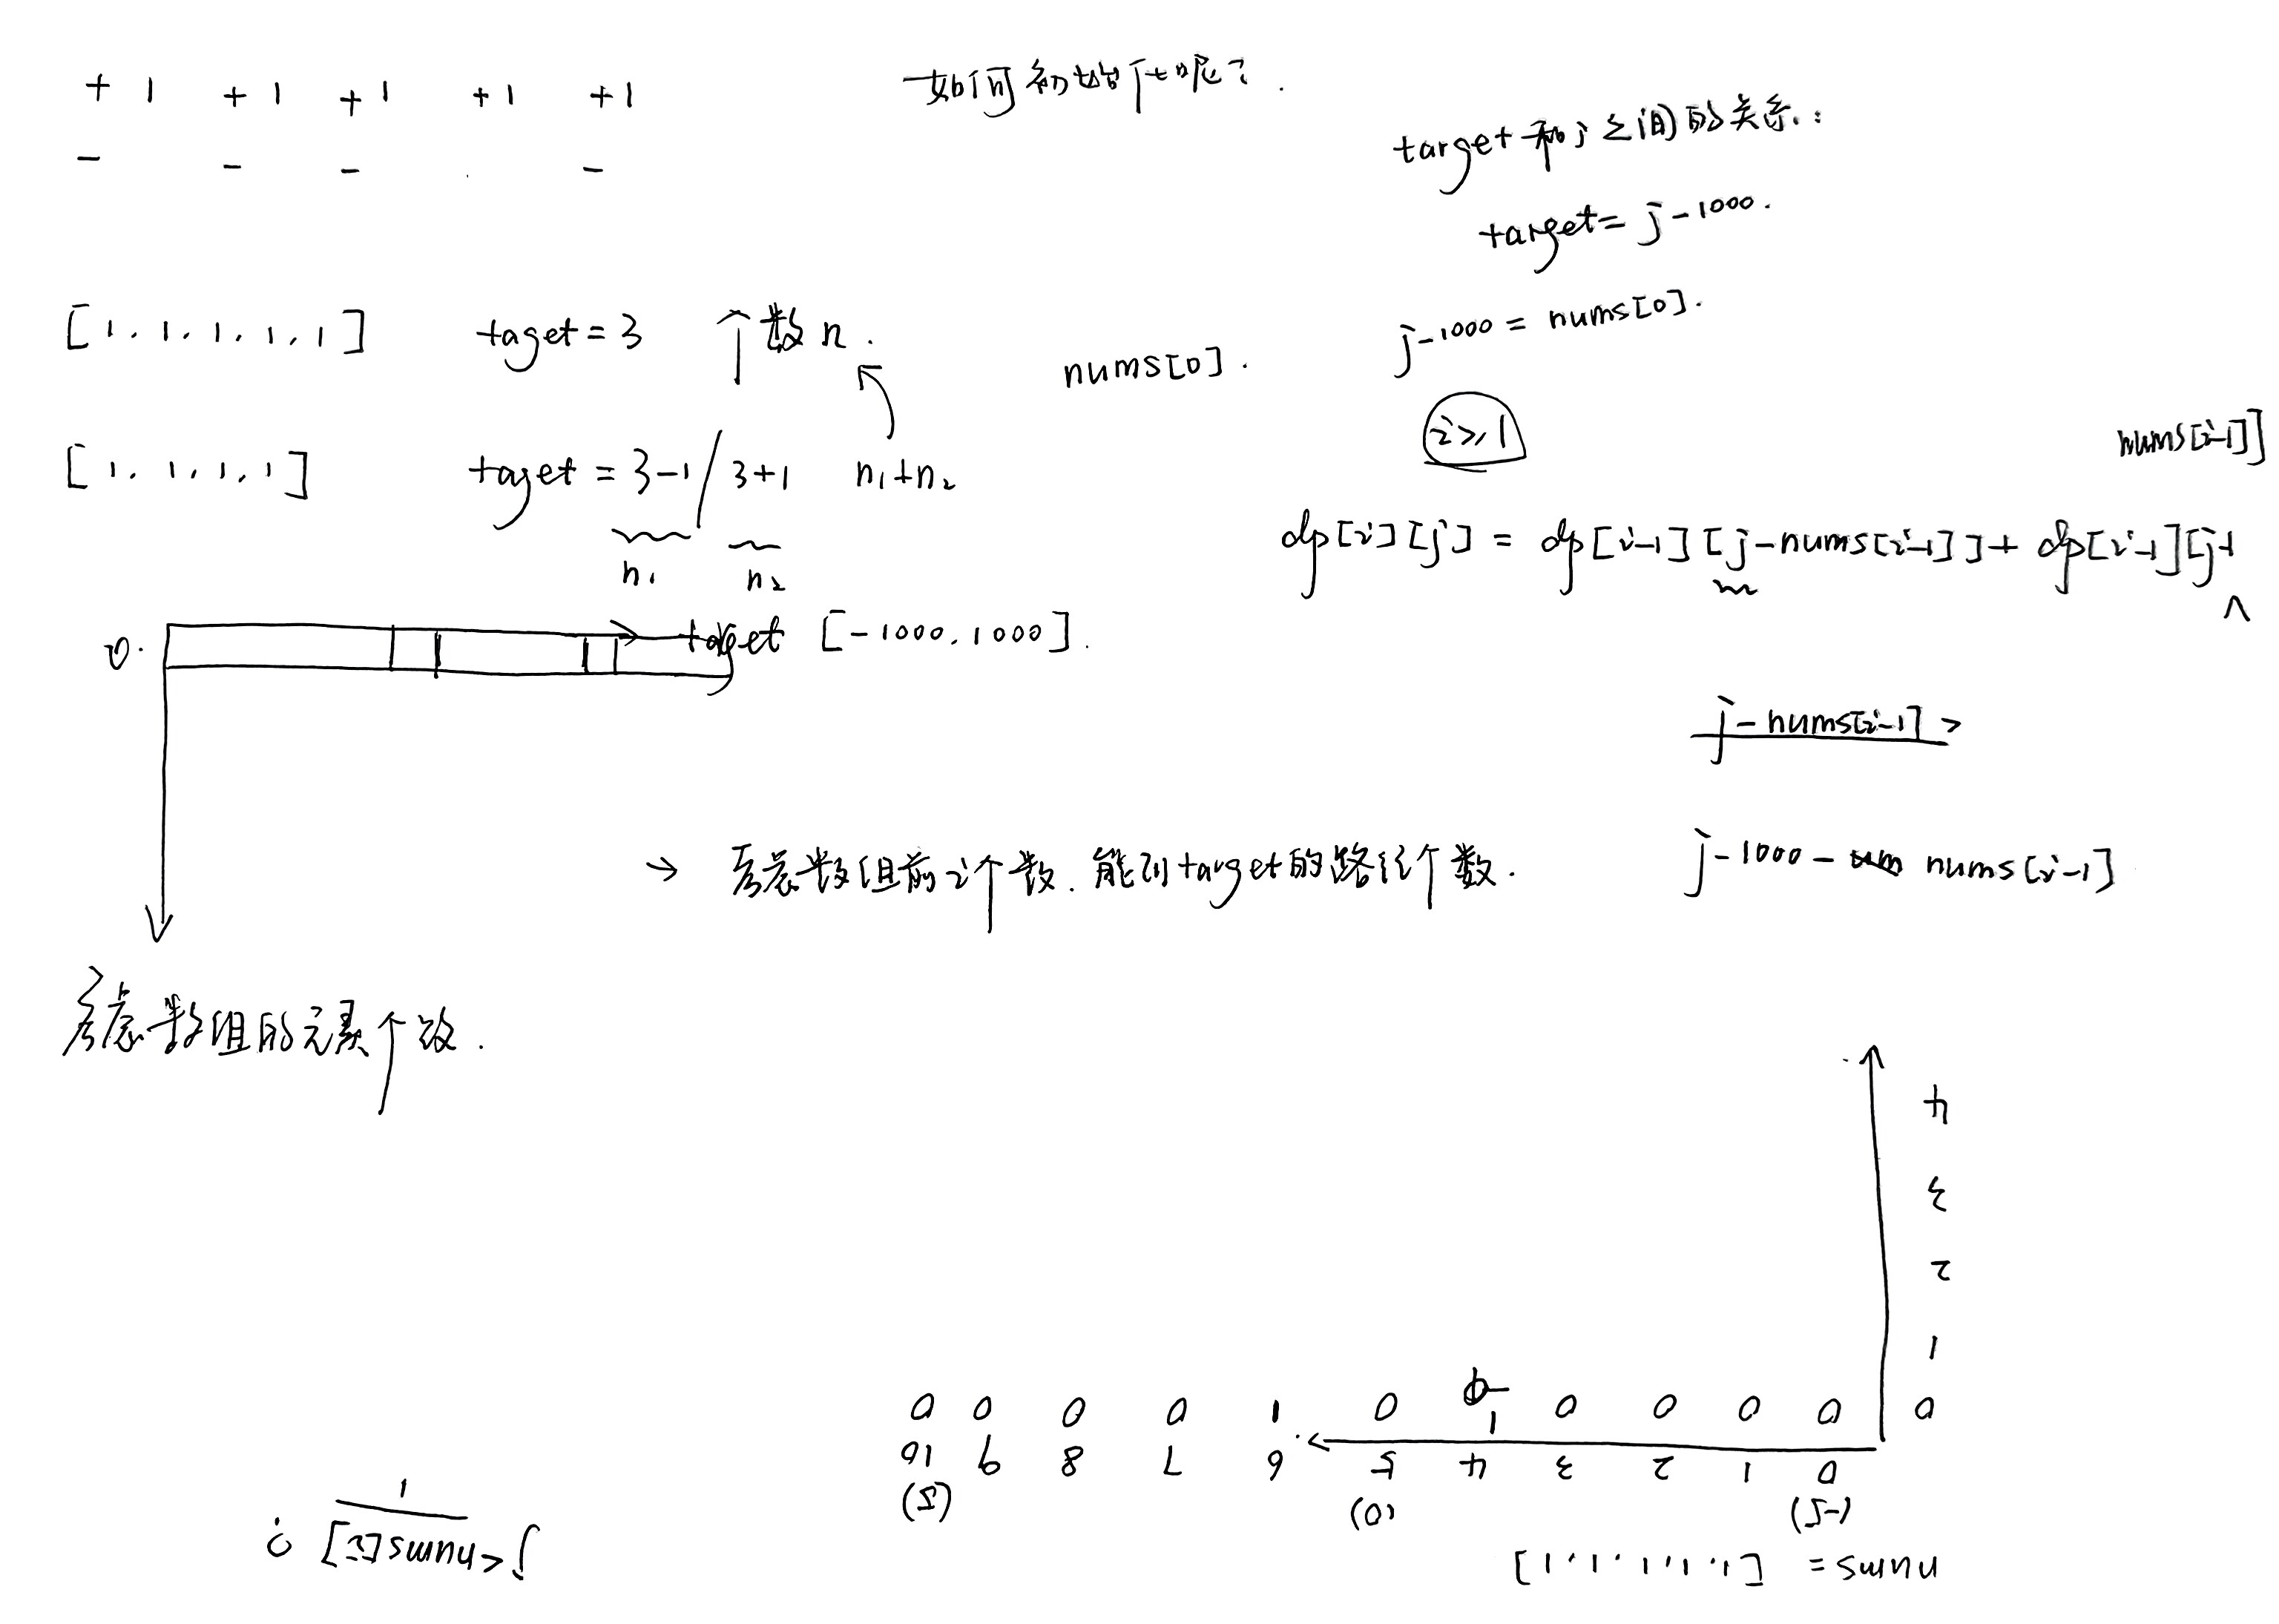 +1 +1 +1 +1 +1
- - - -
如何初始化呢?
target和j之间的关系:
target= j-1000.
j-1000 = nums[0].
nums[0].
i≥1
[1,1,1,1,1] taget=3 个数n.
[1,1,1,1] taget=3-1/3+1 n₁+n₂
n₁ n₂
0. target [-1000,1000].
nums[i-1]]
dp[i][j] = dp[i-1][j-nums[i-1]]+ dp[i-1][j+
j-nums[i-1] >
→ 考虑数组前i个数,能到target的路径个数.
j-1000- nums[i-1]
考虑数组的元素个数.
nums = [1,1,1,1,1]
(-5) (0) (5)
0 1 2 3 4 5 6 7 8 9 10
0 0 0 0 0 1 0 1 0 0 0 0
1
2
3
4
j<nums[i]
1